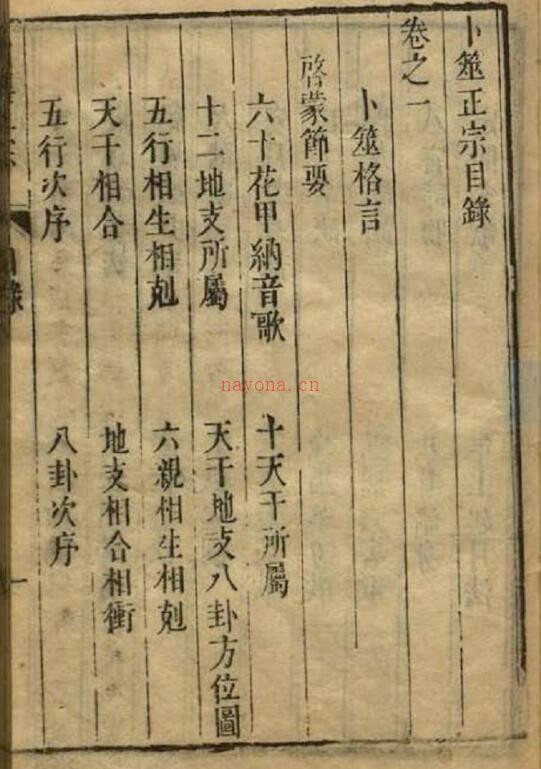 卜筮正宗目錄
卷之一
卜筮格言
啓蒙節要
六十花甲納音歌
十天干所屬
十二地支所屬
天干地支八卦方位圖
五行相生相剋
六親相生相剋
天干相合
地支相合相衝
五行次序
八卦次序
目錄
一
nayona.cn